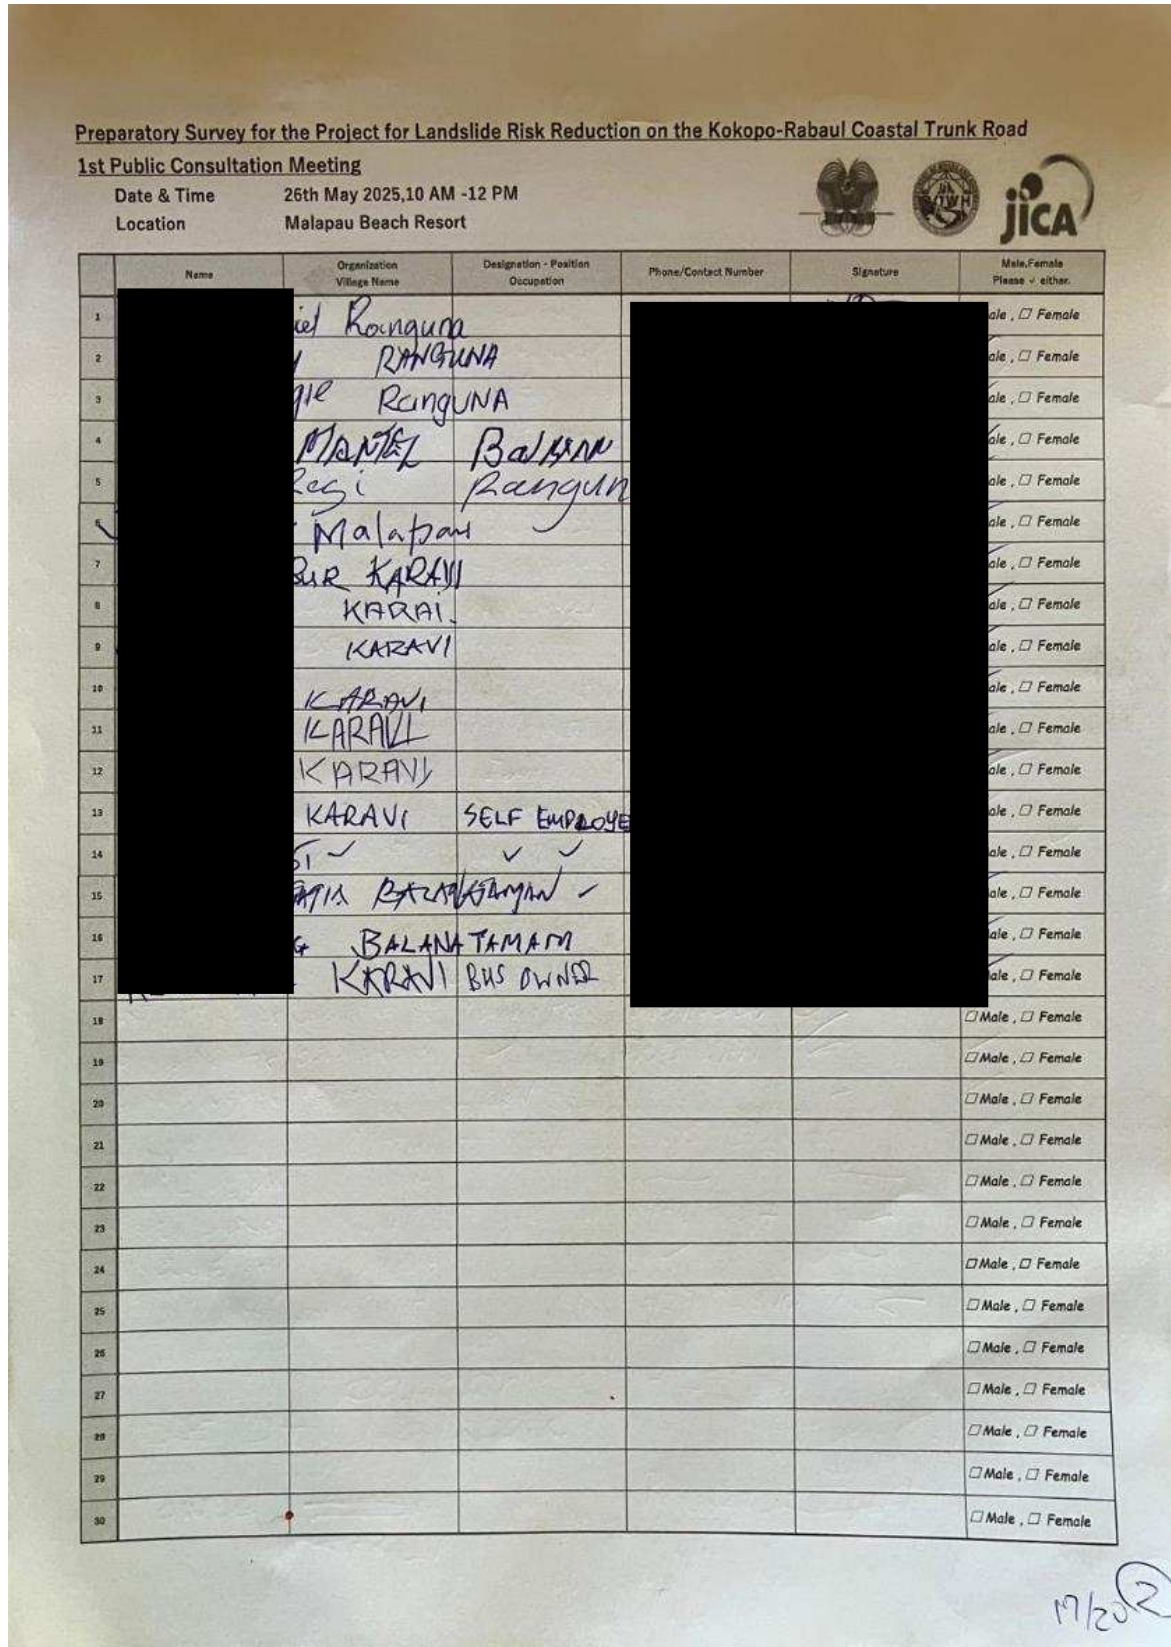 Preparatory Survey for the Project for Landslide Risk Reduction on the Kokopo-Rabaul Coastal Trunk Road
1st Public Consultation Meeting
Date & Time 26th May 2025,10 AM -12 PM
Location Malapau Beach Resort
jICA
Name Organization Village Name Designation - Position Occupation Phone/Contact Number Signature Male,Female Please ✓ either.
1 Ranguna ale , □ Female
2 RANGUNA ale , □ Female
3 RangUNA ale , □ Female
4 ale , □ Female
5 Regi Rangun ale , □ Female
6 Malapau ale , □ Female
7 BUR KARAVI ale , □ Female
8 KARAI. ale , □ Female
9 KARAVI ale , □ Female
10 KARAVI ale , □ Female
11 KARAVI ale , □ Female
12 KARAVI ale , □ Female
13 KARAVI SELF EMPLOYE ale , □ Female
14 ✓ ✓ ✓ ale , □ Female
15 ale , □ Female
16 BALANATAMAM ale , □ Female
17 KARAVI BUS OWNER ale , □ Female
18 □ Male , □ Female
19 □ Male , □ Female
20 □ Male , □ Female
21 □ Male , □ Female
22 □ Male , □ Female
23 □ Male , □ Female
24 □ Male , □ Female
25 □ Male , □ Female
26 □ Male , □ Female
27 □ Male , □ Female
28 □ Male , □ Female
29 □ Male , □ Female
30 □ Male , □ Female
17/20 2